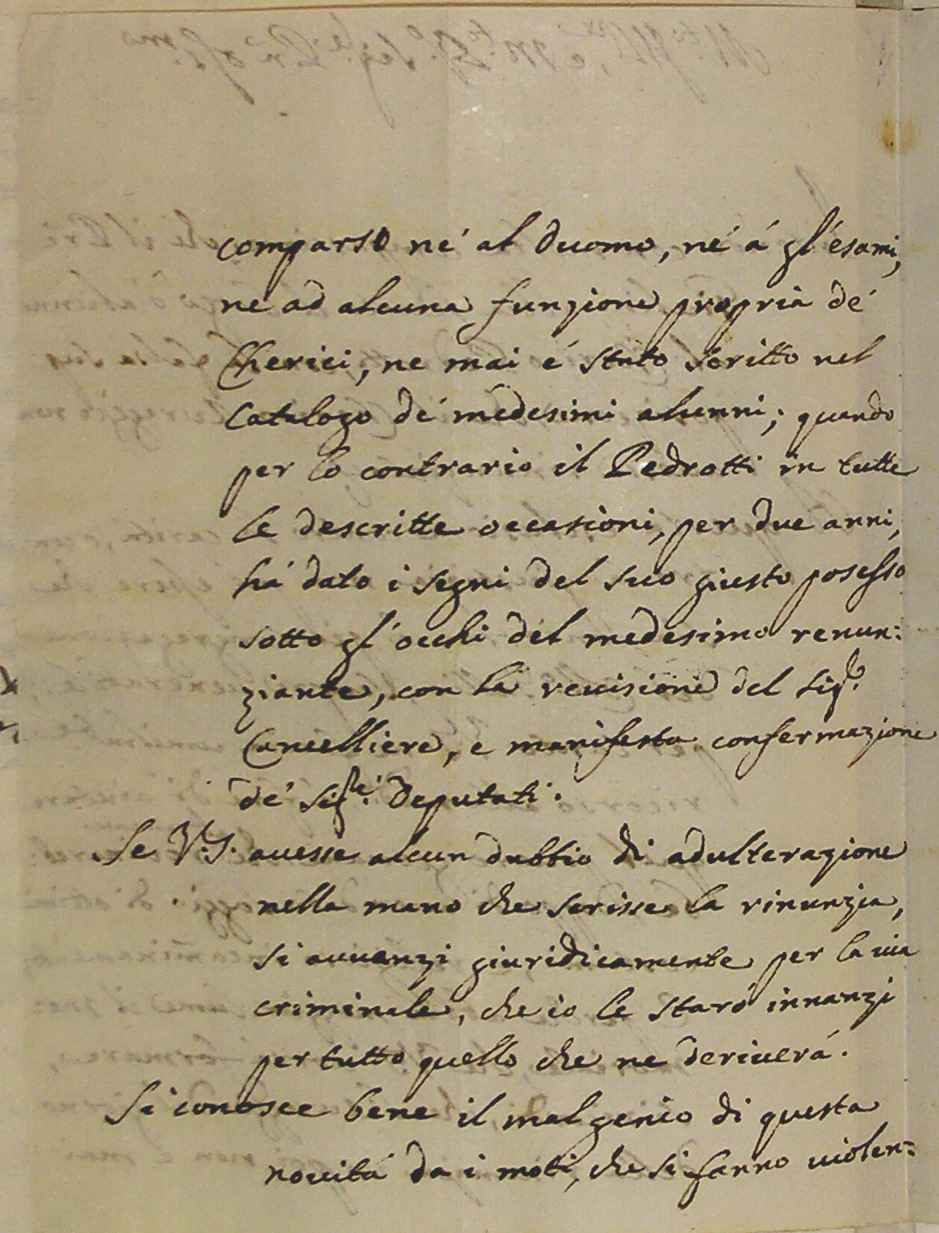 comparso né al duomo, né á gl'esami,
ne ad alcuna funzione propria dé
Cherici, ne mai é stato scritto nel
Catalogo dé medesimi alunni; quando
per lo contrario il Pedrotti in tutte
le descritte occasioni, per due anni,
há dato i segni del suo giusto posesso
sotto gl'occhi del medesimo renun:
ziante, con la reuisione del Sigr.
Cancelliere, e manifesta confermazione
dé Sigri. Deputati.
Se V.S. auesse alcun dubbio di adulterazione
nella mano che scrisse la rinunzia,
si auuanzi giuridicamente per la uia
criminale, che io le staró innanzi
per tutto quello che ne deriuerá.
Si conosce bene il mal genio di questa
nouitá da i moti, che si fanno uiolen: